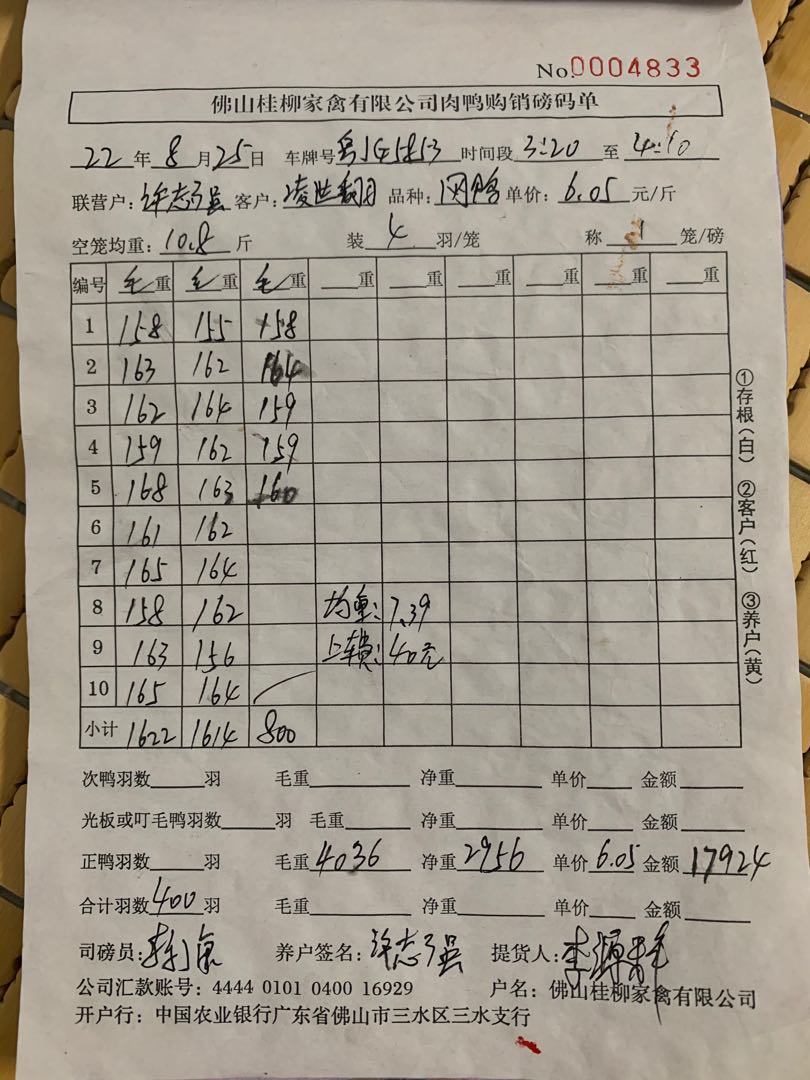 No.0004833
佛山桂柳家禽有限公司肉鸭购销磅码单
22年8月25日 车牌号 时间段3:20至4:10
联营户:许志强 客户:凌世翻 品种: 单价:6.05元/斤
空笼均重:10.8斤 装4羽/笼 称1笼/磅
编号 毛重 毛重 毛重 重 重 重 重 重 重
1 158 155 158
2 163 162 164
3 162 164 159
4 159 162 159
5 168 163 160
6 161 162
7 165 164
8 158 162 均重: 7.39
9 163 156 上车费: 40元
10 165 164
小计 1622 1614 800
次鸭羽数 羽 毛重 净重 单价 金额
光板或叮毛鸭羽数 羽 毛重 净重 单价 金额
正鸭羽数 羽 毛重4036 净重2956 单价6.05 金额17924
合计羽数400羽 毛重 净重 单价 金额
司磅员: 养户签名:许志强 提货人:李源群
公司汇款账号:4444 0101 0400 16929 户名:佛山桂柳家禽有限公司
开户行:中国农业银行广东省佛山市三水区三水支行
①存根(白) ②客户(红) ③养户(黄)